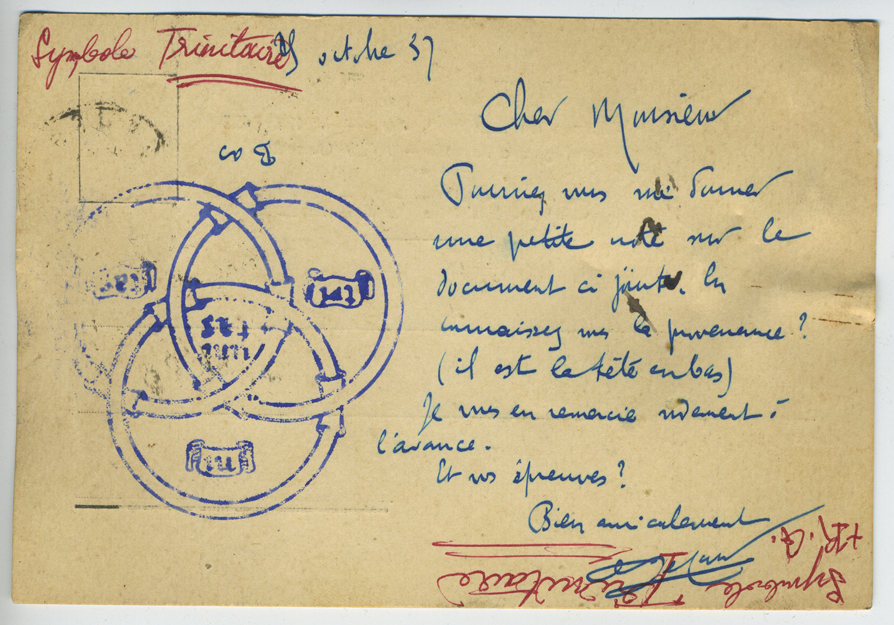 Symbole Trinitaire
25 octobre 37
Cher Monsieur
Pourriez vous me donner
une petite note sur le
document ci joint. En
connaissez vous la provenance ?
(il est la tête en bas)
Je vous en remercie vivement à
l'avance.
Et vos épreuves ?
Bien amicalement
Symbole Trinitaire
tri
ni
tas
uni
tas